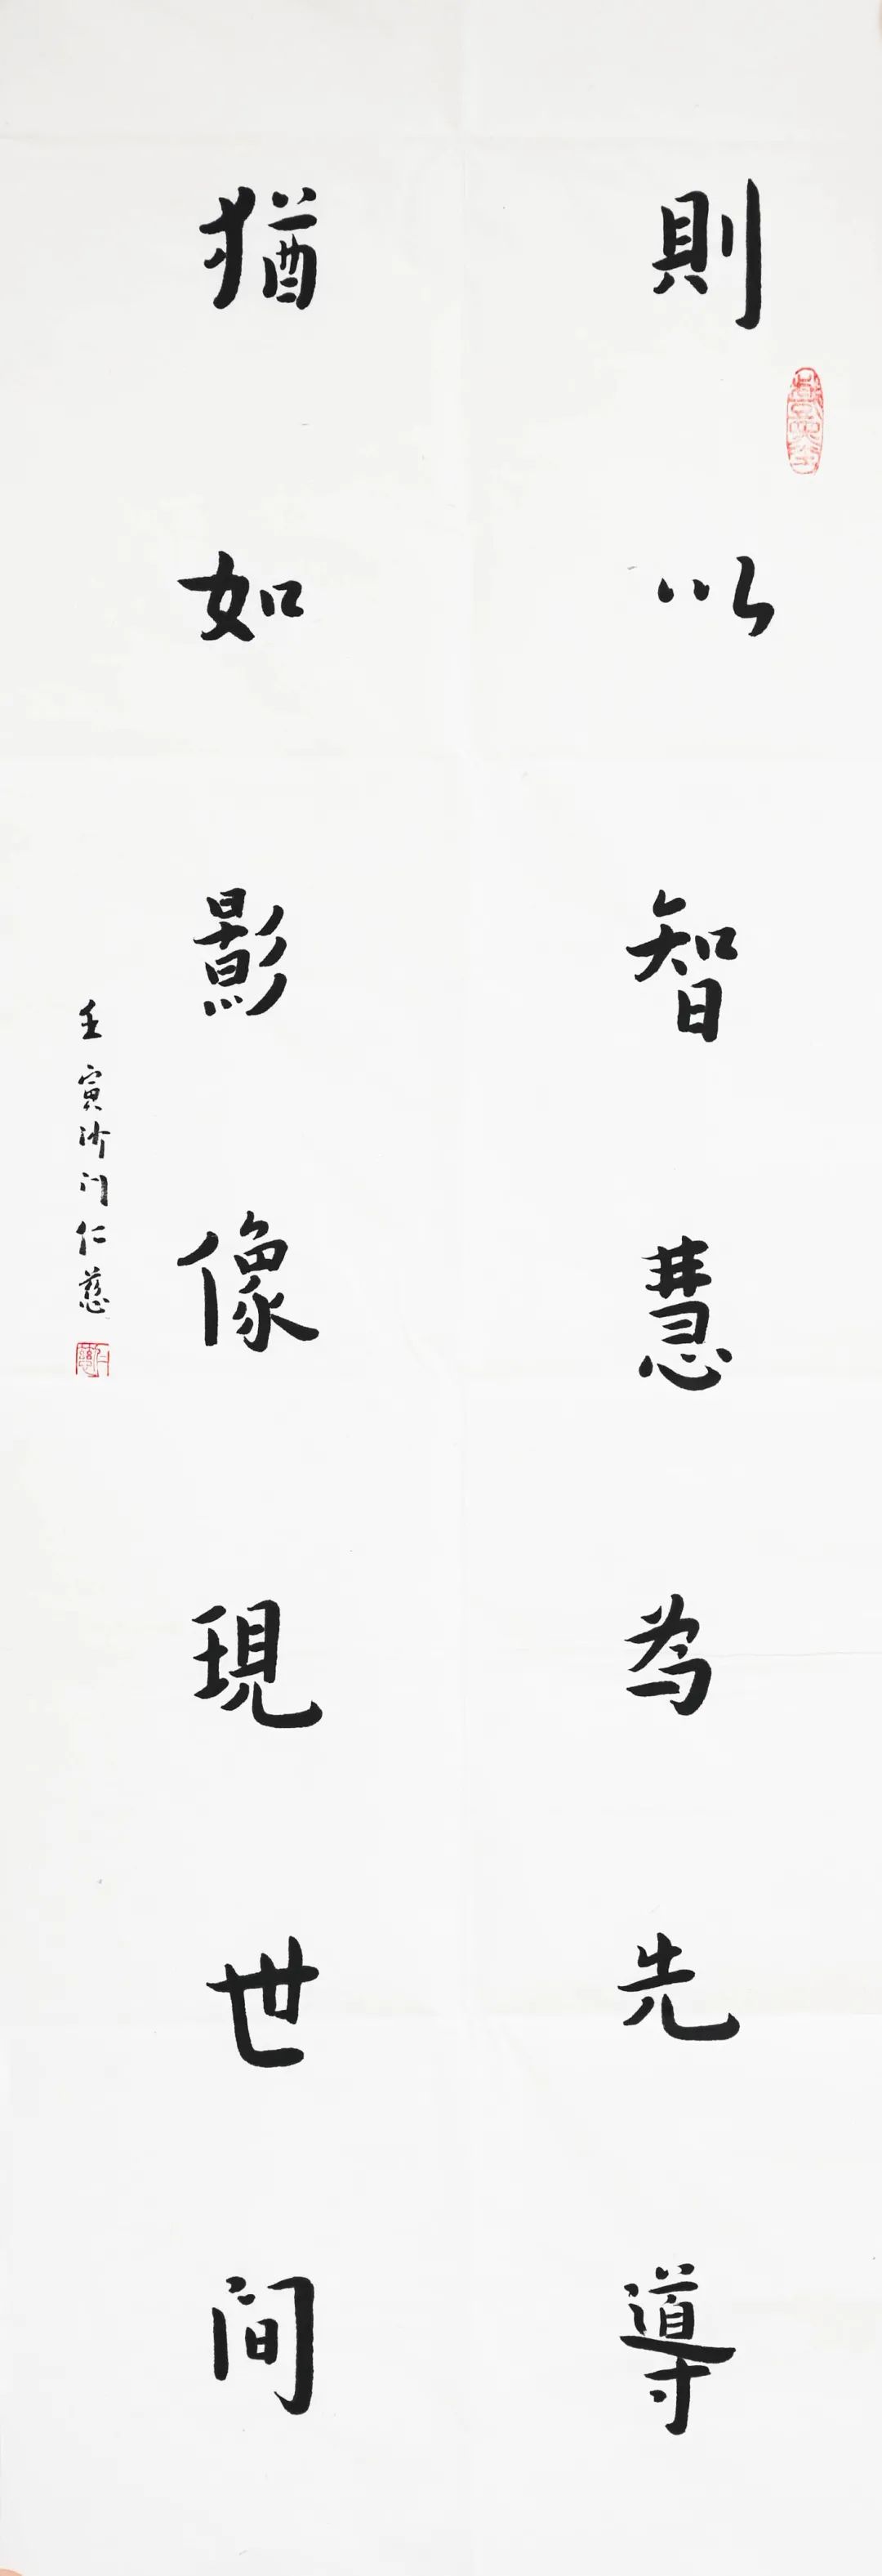 則以智慧為先導
猶如影像現世間
壬寅沙门仁慈
仁慈